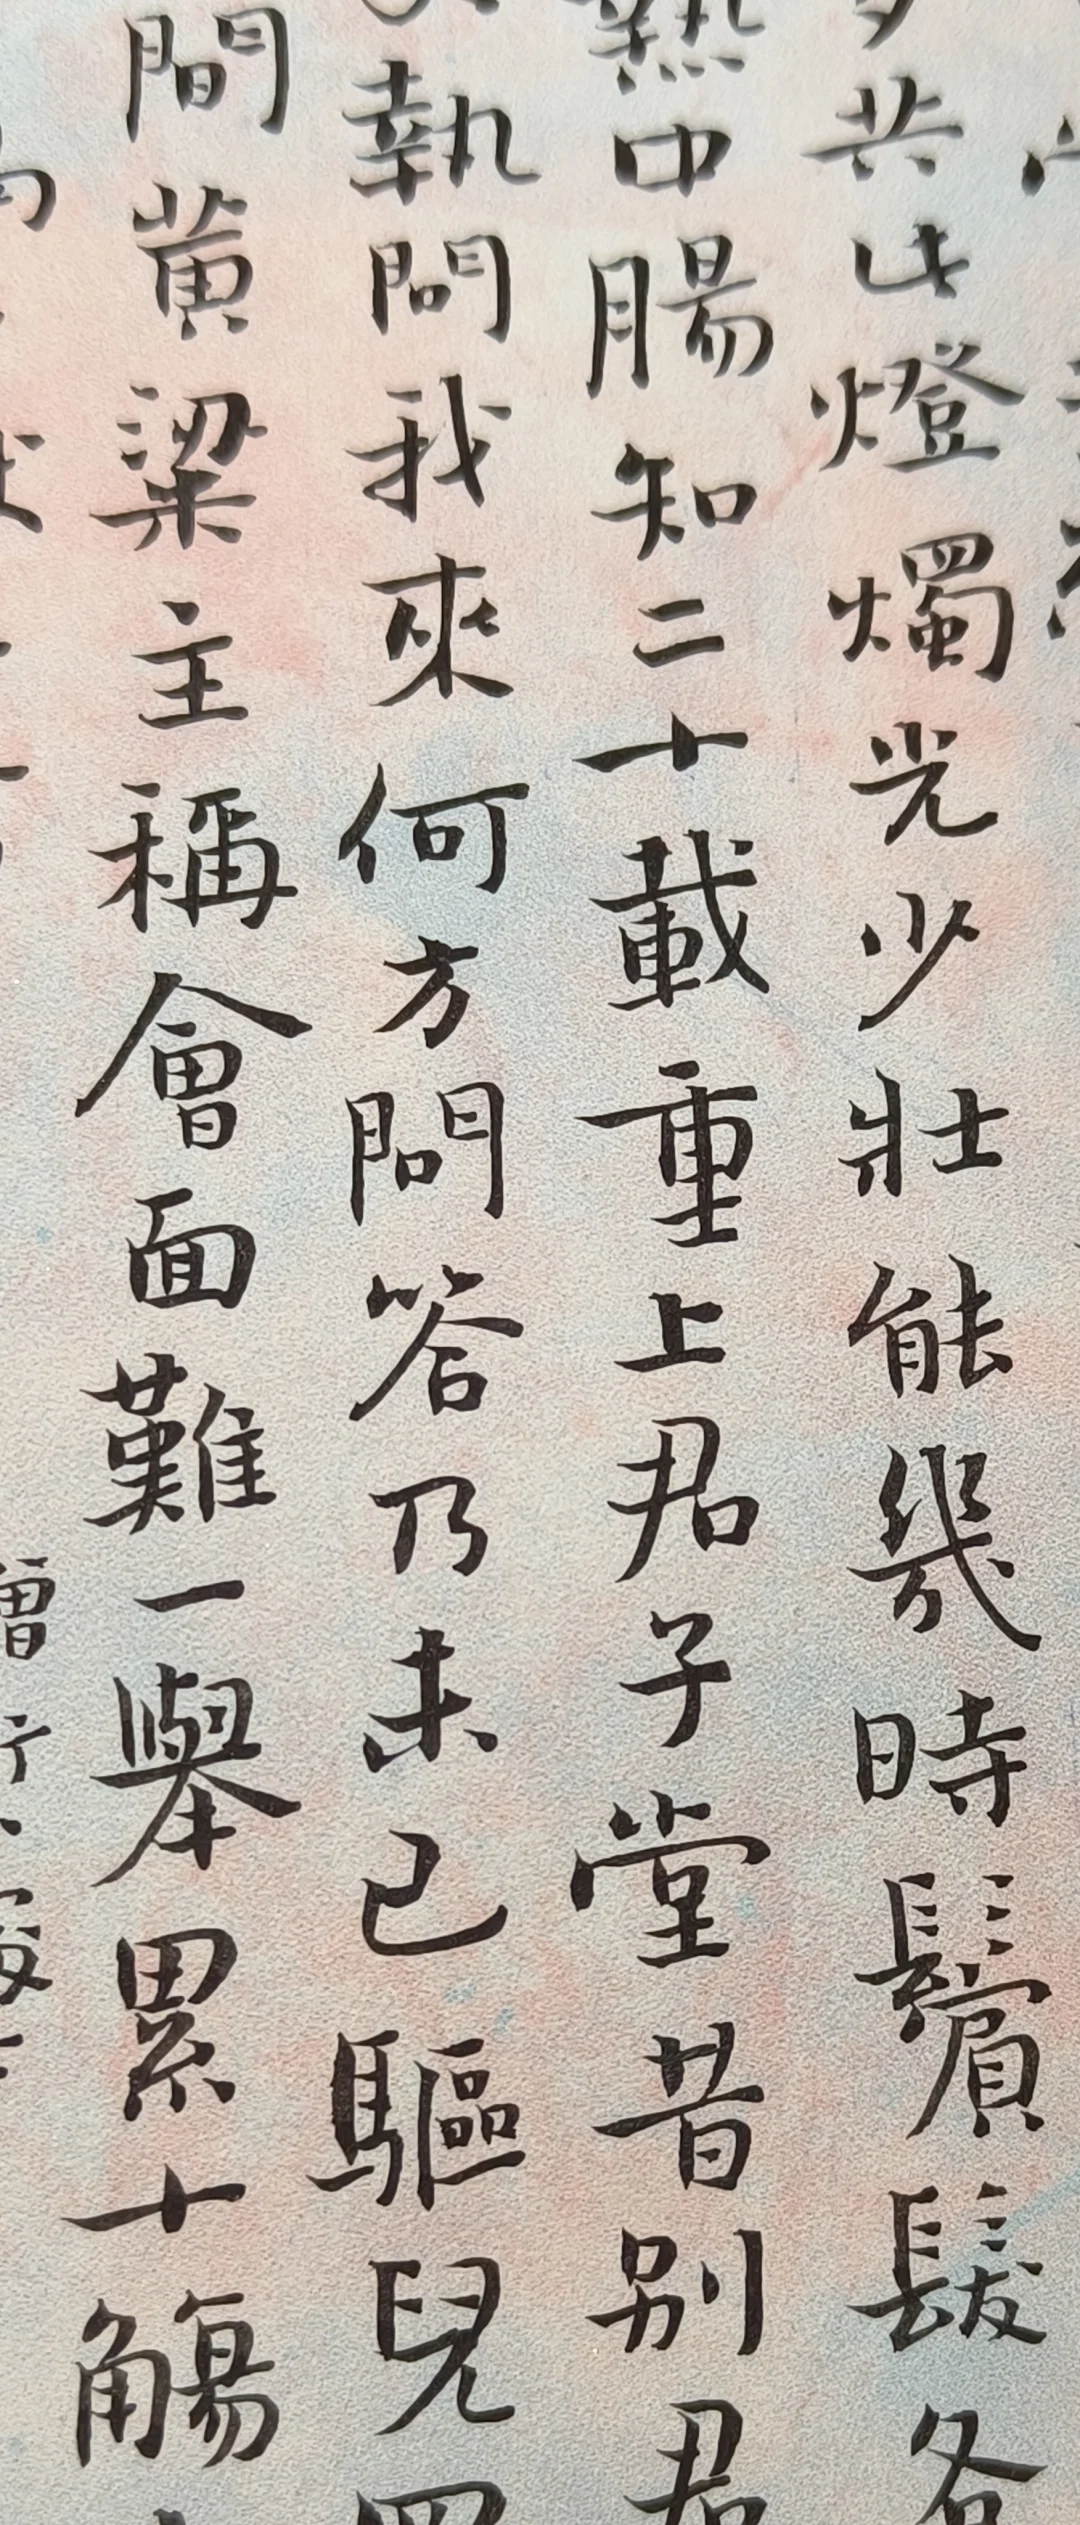 共此燈燭光少壯能幾時鬢髮各
熱中腸知二十載重上君子堂昔别君
執問我來何方問答乃未已驅兒羅
間黄粱主稱會面難一舉累十觴